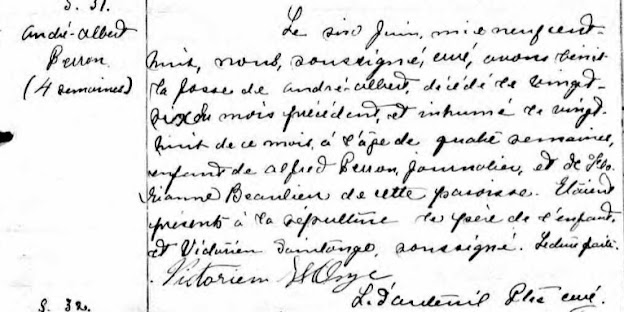 S. 31.
André-Albert
Perron
(4 semaines)
Le six Juin, mil neuf cent-
huit, nous, soussigné, curé, avons béni
la fosse de André-Albert, décédé le vingt-
six du mois précédent, et inhumé le vingt-
huit de ce mois, à l'âge de quatre semaines,
enfant de Alfred Perron, Journalier, et de
Beaulieu de cette paroisse. Etaient
présents à la sépulture le père de l'enfant,
et Victorien soussigné. Lecture faite.
Victorien St Onge
L. D'Auteuil Ptre curé.
S. 32.